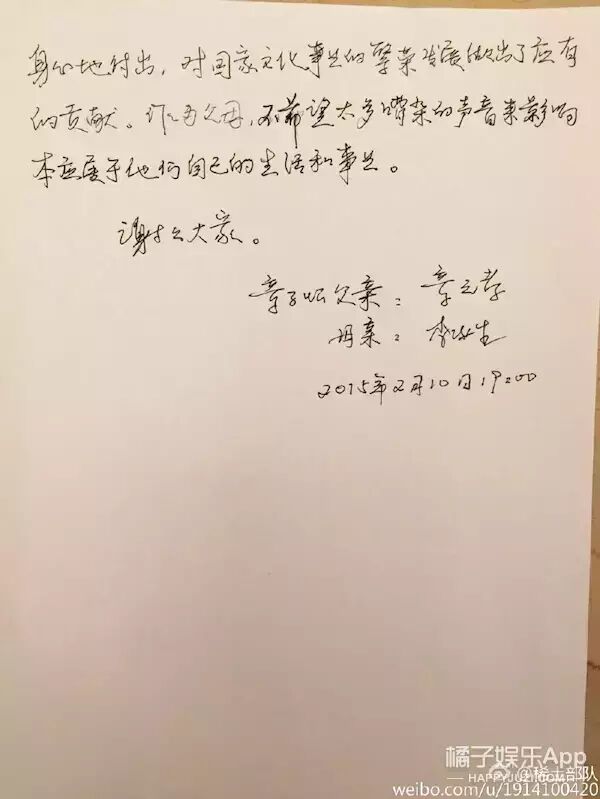 身心地付出，对国家文化事业的繁荣发展做出了应有
的贡献。作为父母，不希望太多嘈杂的声音来影响
本应属于他们自己的生活和事业。
谢谢大家。
章子怡父亲：章元孝
母亲：李涿生
2015年2月10日19:00
橘子娱乐App
HAPPYJUZI.COM
@稀土部队
weibo.com/u/1914100420